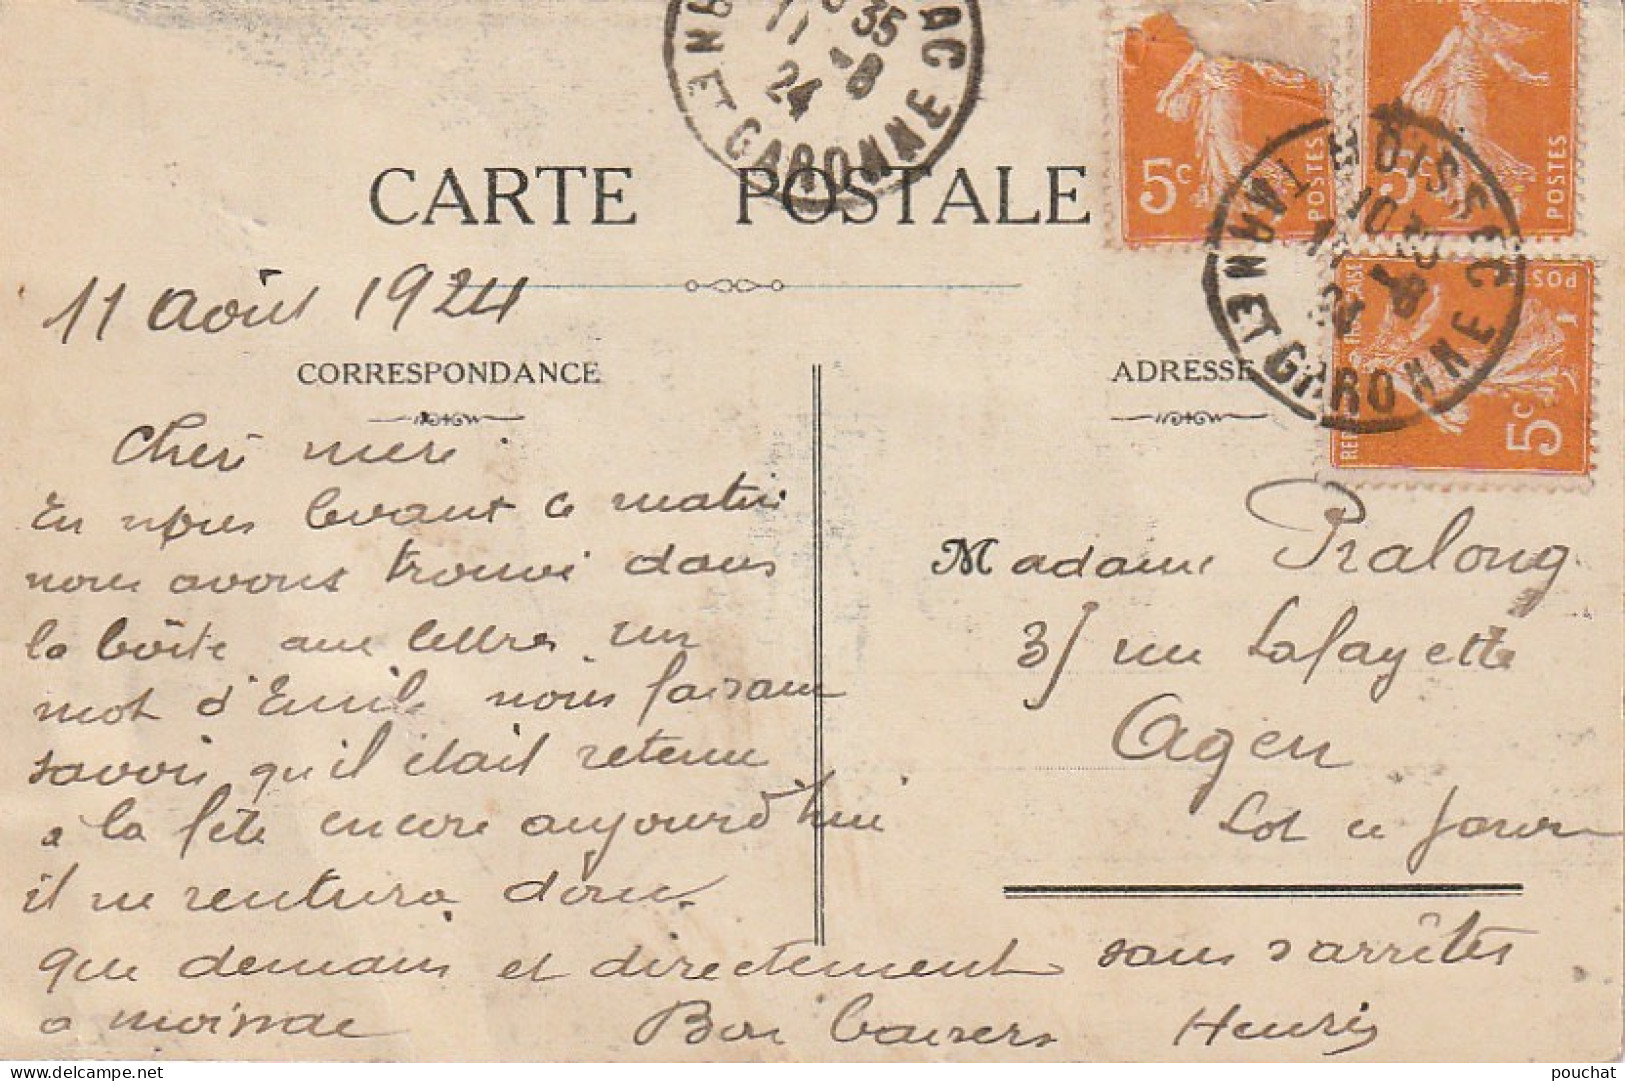 AC 
TARN ET GARONNE
35
11 -8
24
CARTE POSTALE
5c POSTES
5c POSTES
MOISSAC
TARN ET GARONNE
REP FRANÇAISE POST
5c
11 Août 1924
CORRESPONDANCE
ADRESSE
Cheri mere
En nous levant ce matin
nous avons trouvé dans
la boîte aux lettres un
mot d'Emile nous faisant
savoir qu'il était retenu
a la fête encore aujourd'hui
il ne rentrera donc
que demain et directement sans s'arrêter
a moissac Bon baisers Henri
Madame Pralong
35 rue Lafayette
Agen
Lot et Garonne
https://www.delcampe.net
pouchat